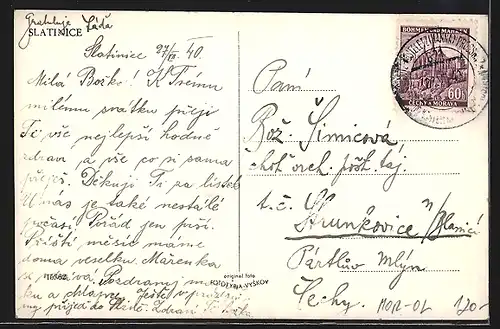 Gratuluje Láďa
SLATINICE
Slatinice 27/ 40.
Milá Božko! K Tvému
milému svátku přeji
Ti vše nejlepší hodně
zdraví a vše co si sama
přeješ. Děkuji Ti za lístek
U nás je také nestálé
počasí. Pořád jen prší.
Příští měsíc máme
doma veselku. Mařenka
se Pozdravuj
ku a
Zdraví Tě
original foto
FOTOTYPIA-VYŠKOV
BÖHMEN UND MÄHREN
60h
ČECHY A MORAVA
Paní
Bož. Šimicová
choť vrch. pošt. taj.
t. č.
Strunkovice n/Blanicí
Pártlův Mlýn
Čechy.
MOR-OL
120-